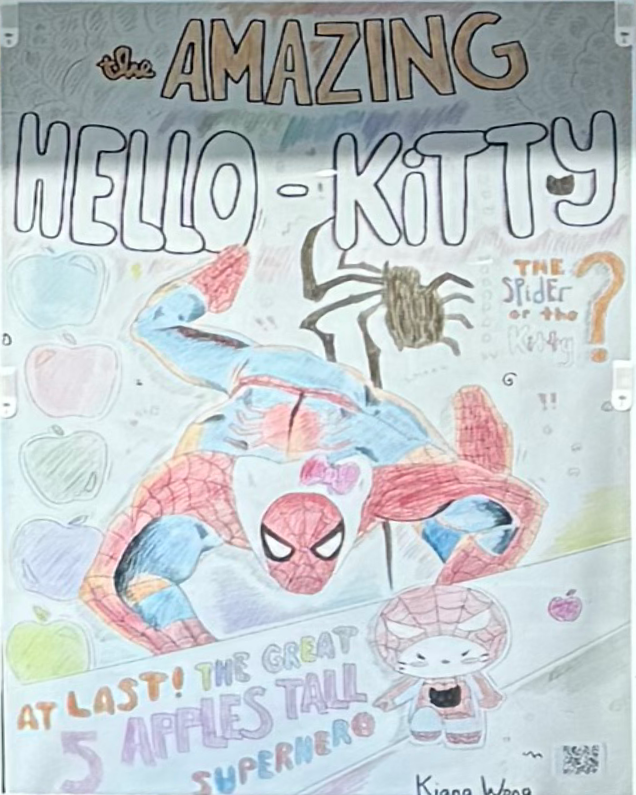 the AMAZING
HELLO-KiTTY
THE
SPiDEr
or the
Kitty
?
AT LAST! THE GREAT
5 APPLES TALL
SUPERHERO
Kiana Wong